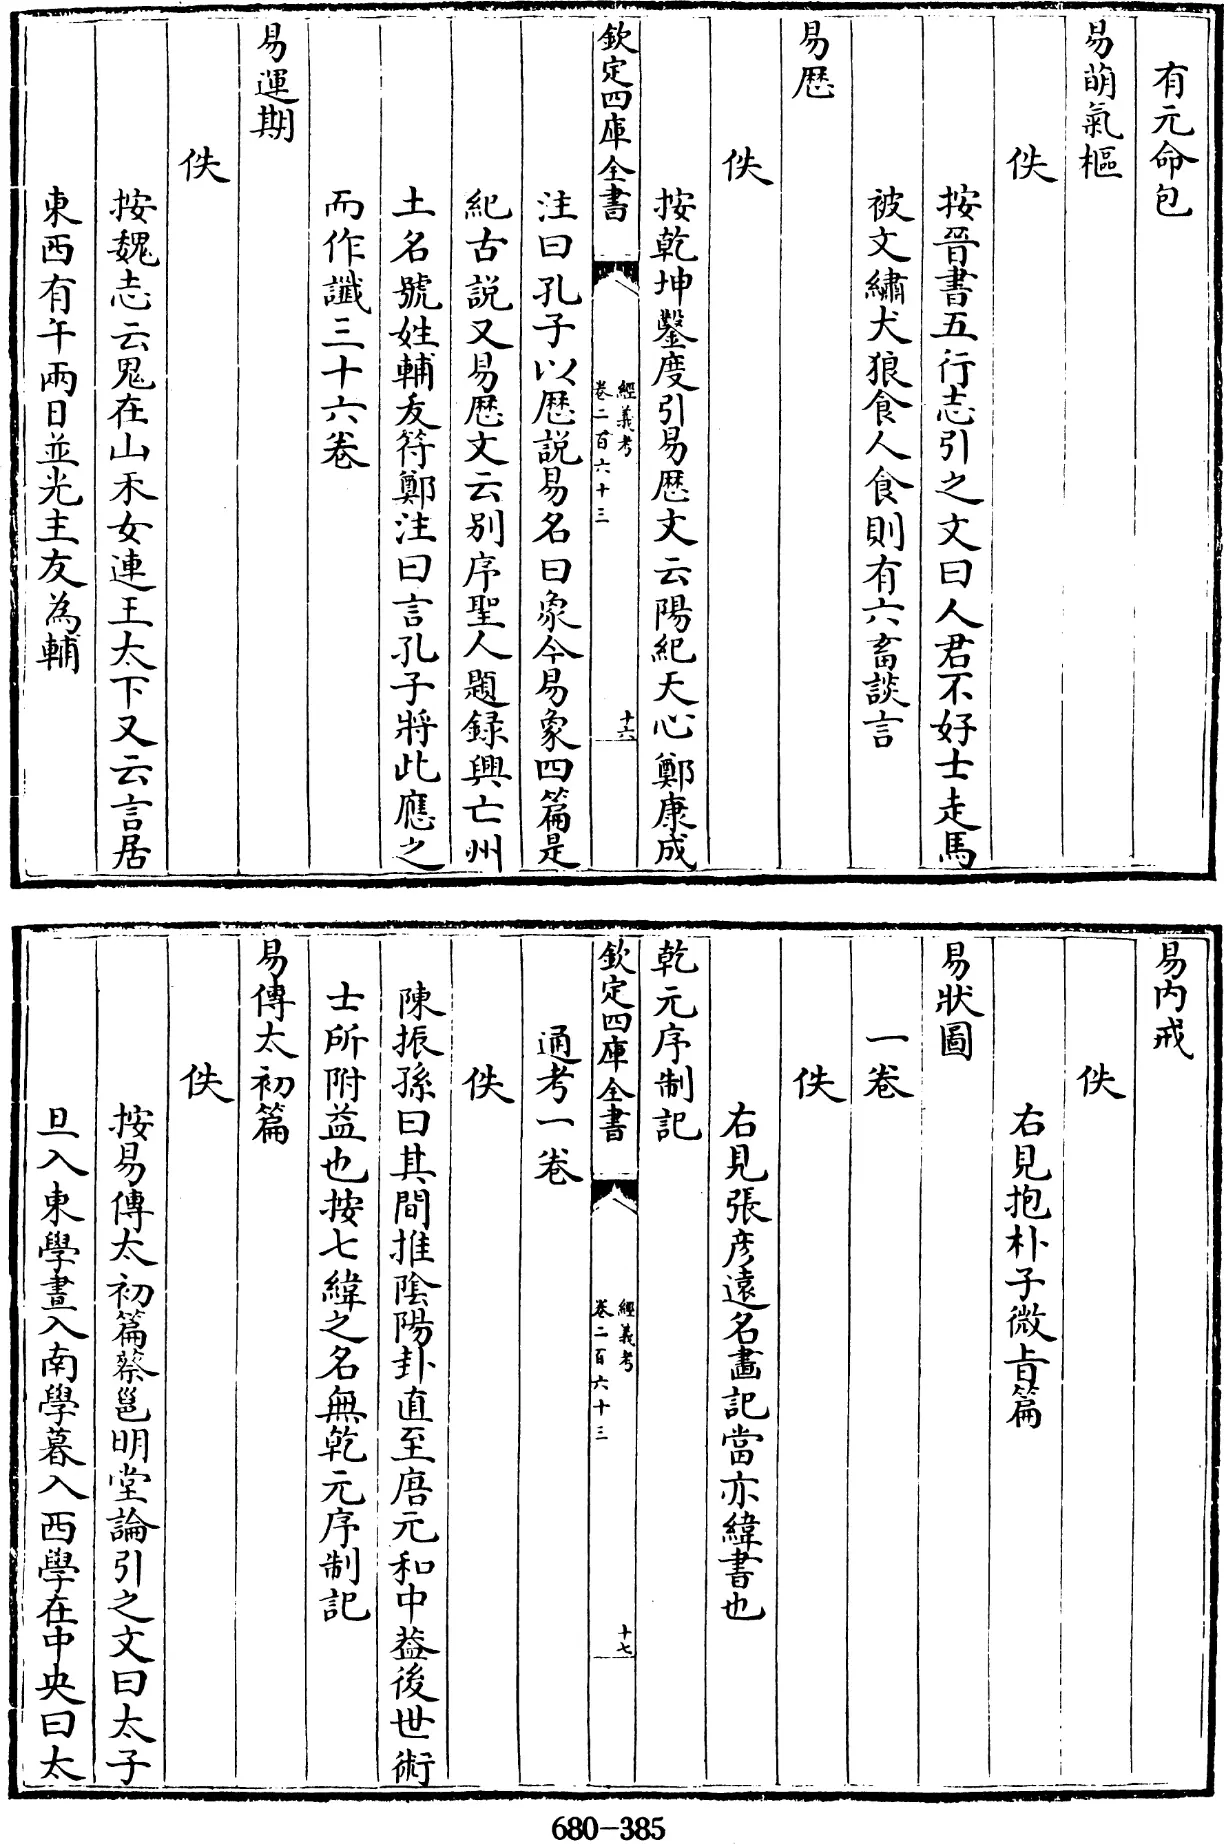 有元命包
易萌氣樞
佚
按晉書五行志引之文曰人君不好士走馬
被文繡犬狼食人食則有六畜談言
易歴
佚
按乾坤鑿度引易歴文云陽紀天心鄭康成
欽定四庫全書
經義考
卷二百六十三
十六
注曰孔子以歴説易名曰象今易象四篇是
紀古説又易歴文云别序聖人題録興亡州
土名號姓輔犮符鄭注曰言孔子將此應之
而作讖三十六卷
易運期
佚
按魏志云鬼在山禾女連王太下又云言居
東西有午兩日並光主友為輔
易内戒
佚
右見抱朴子微㫖篇
易狀圖
一卷
佚
右見張彦遠名畫記當亦緯書也
乾元序制記
欽定四庫全書
經義考
卷二百六十三
十七
通考一卷
佚
陳振孫曰其間推陰陽卦直至唐元和中葢後世術
士所附益也按七緯之名無乾元序制記
易傳太初篇
佚
按易傳太初篇蔡邕明堂論引之文曰太子
旦入東學晝入南學暮入西學在中央曰太
680-385